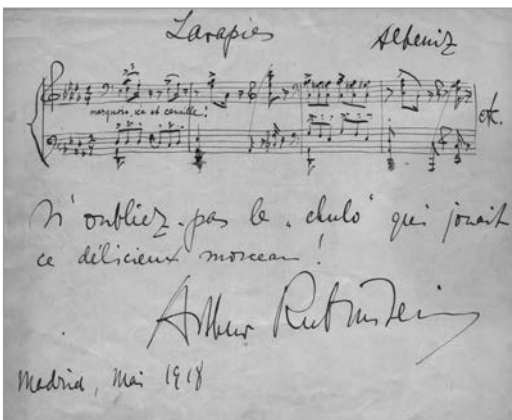 Lavapiés
Albeniz
narquois, sec et canaille!
etc.
N'oubliez-pas le "chulo" qui jouait
ce délicieux morceau!
Arthur Rubinstein
Madrid, Mai 1918